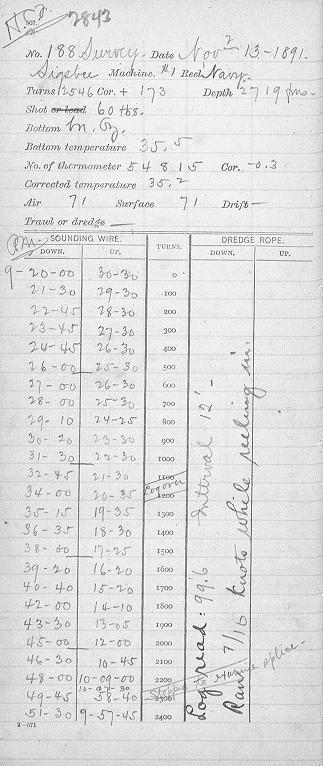 N.S.J.
No. 2843
No. 188 Survey. Date Nov 2-13-1891.
Sigsbee Machine. #1 Reel Navy.
Turns 2546 Cor. + 173 Depth 2719 fms.
Shot or lead 60 lbs.
Bottom M. Oz.
Bottom temperature 35.5
No. of thermometer 54815 Cor. -0.3
Corrected temperature 35.2
Air 71 Surface 71 Drift —
Trawl or dredge —
P.M. SOUNDING WIRE. TURNS. DREDGE ROPE.
DOWN. UP. DOWN. UP.
9-20-00 30-30 0
21-30 29-30 100
22-45 28-30 200
23-45 27-30 300
24-45 26-30 400
26-00 25-30 500
27-00 26-30 600
28-00 25-30 700
29-10 24-25 800
30-20 23-30 900
31-30 22-30 1000
32-45 21-30 1100
Log over
34-00 20-35 1200
35-15 19-35 1300
36-35 18-30 1400
38-00 17-25 1500
39-20 16-20 1600
40-40 15-20 1700
42-00 14-10 1800
43-30 13-05 1900
45-00 12-00 2000
46-30 10-45 2100
48-00 10-09-00 2200
10-07-30
49-45 58-40 2300
51-30 9-57-45 2400
Stopped to examine splice.
Log read: 99.6 Interval 12'-
Ran 7/10 knots while reeling in.
2-571